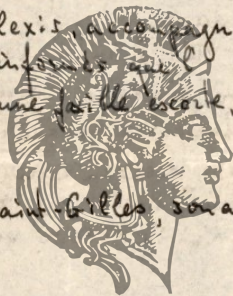 lexis, accompagn
informés que l
une faible escorte,
aint-Gilles, son a